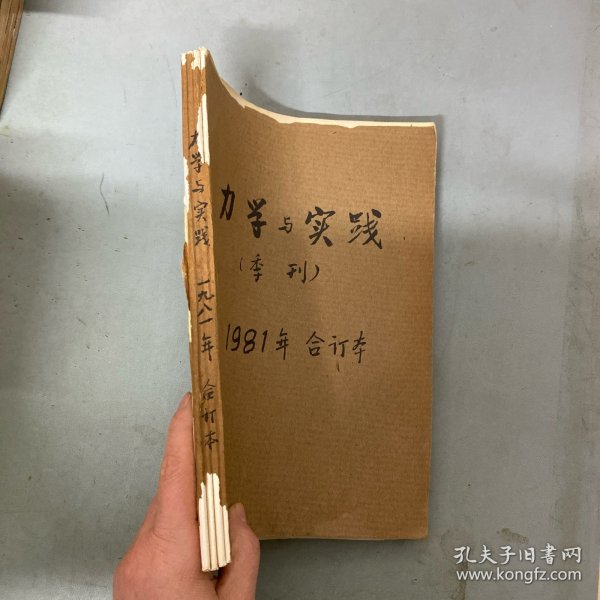 力学与实践
(季刊)
1981年 合订本
力学与实践 一九八一年 合订本
孔夫子旧书网
www.kongfz.com